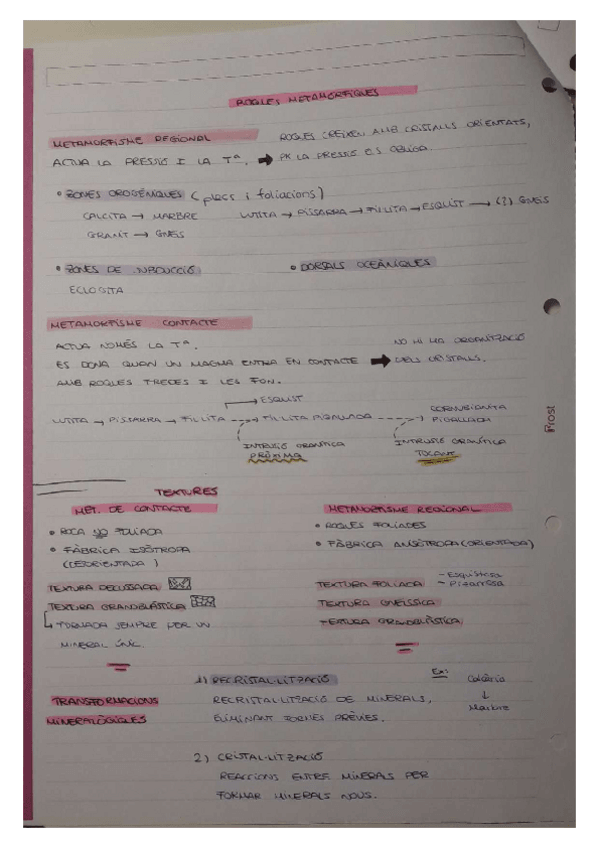 ROQUES METAMÒRFIQUES
METAMORFISME REGIONAL
ROQUES CREIXEN AMB CRISTALLS ORIENTATS,
ACTUA LA PRESSIÓ I LA Tª. → PK LA PRESSIÓ ES OBLIGA.
• ZONES OROGÈNIQUES (plecs i foliacions)
CALCITA → MARBRE
LUTITA → PISSARRA → FIL·LITA → ESQUIST → (?) GNEIS
GRANIT → GNEIS
• ZONES DE SUBDUCCIÓ
• DORSALS OCEÀNIQUES
ECLOGITA
METAMORFISME CONTACTE
ACTUA NOMÉS LA Tª.
NO HI HA ORGANITZACIÓ
ES DONA QUAN UN MAGMA ENTRA EN CONTACTE → DELS CRISTALLS.
AMB ROQUES FREDES I LES FON.
→ ESQUIST
LUTITA → PISSARRA → FIL·LITA → FIL·LITA PIGALLADA → CORNUBIANITA PIGALLADA
INTRUSIÓ GRANÍTICA
PRÒXIMA
INTRUSIÓ GRANÍTICA
TOCANT
TEXTURES
MET. DE CONTACTE
METAMORFISME REGIONAL
• ROCA NO FOLIADA
• ROQUES FOLIADES
• FÀBRICA ISÒTROPA
(DESORIENTADA)
• FÀBRICA ANISÒTROPA (ORIENTADA)
TEXTURA DECUSSADA
TEXTURA FOLIADA
- Esquistosa
- Pizarrosa
TEXTURA GRANOBLÀSTICA
TEXTURA GNEISSICA
FORMADA SEMPRE PER UN
MINERAL ÚNIC.
TEXTURA GRANOBLÀSTICA
TRANSFORMACIONS
MINERALÒGIQUES
1) RECRISTAL·LITZACIÓ
RECRISTAL·LITZACIÓ DE MINERALS,
ELIMINANT FORMES PRÈVIES.
Ex:
Calcària
↓
Marbre
2) CRISTAL·LITZACIÓ
REACCIONS ENTRE MINERALS PER
FORMAR MINERALS NOUS.
Frost